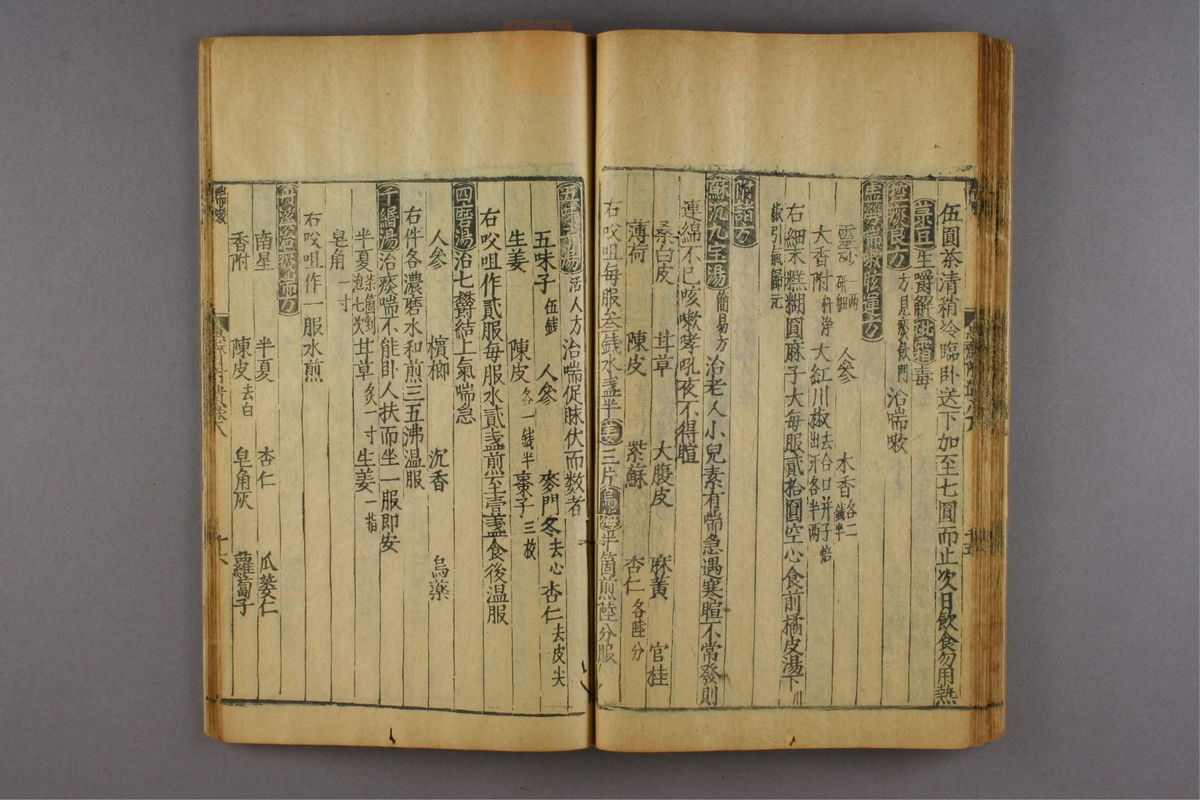 伍圓茶清稍冷臨卧送下加至七圓而止次日飲食勿用熱
菉豆生嚼解砒霜毒
控痰良方 方見痰飲門 治喘嗽
虛勞喘嗽眩運方
靈砂 研細 人參 木香 各二錢半
大香附 大紅川椒 去合口并子焙出汗各半兩
右細末糕糊圓麻子大每服貳拾圓空心食前橘皮湯下 川椒引氣歸元
附諸方
蘇沉九宝湯 簡易方 治老人小兒素有喘急遇寒暄不常發則
連綿不已咳嗽哮吼夜不得睡
桑白皮 甘草 大腹皮 麻黃 官桂
薄荷 陳皮 紫蘇 杏仁 各陸分
右㕮咀每服叁錢水盞半姜三片烏梅半箇煎陸分服
五味子湯 活人方 治喘促脉伏而数者
五味子 伍錢 人參 麥門冬 去心 杏仁 去皮尖
生姜 陳皮 各一錢半 棗子 三枚
右㕮咀作貳服每服水貳盞煎至壹盞食後温服
四磨湯 治七欝結上氣喘急
人參 檳榔 沉香 烏藥
右件各濃磨水和煎三五沸温服
千緡湯 治痰喘不能卧人扶而坐一服即安
半夏 泡七次 甘草 炙一寸 生姜 一指
皂角 一寸
右㕮咀作一服水煎
南星 半夏 杏仁 瓜蔞仁
香附 陳皮 去白 皂角灰 蘿蔔子